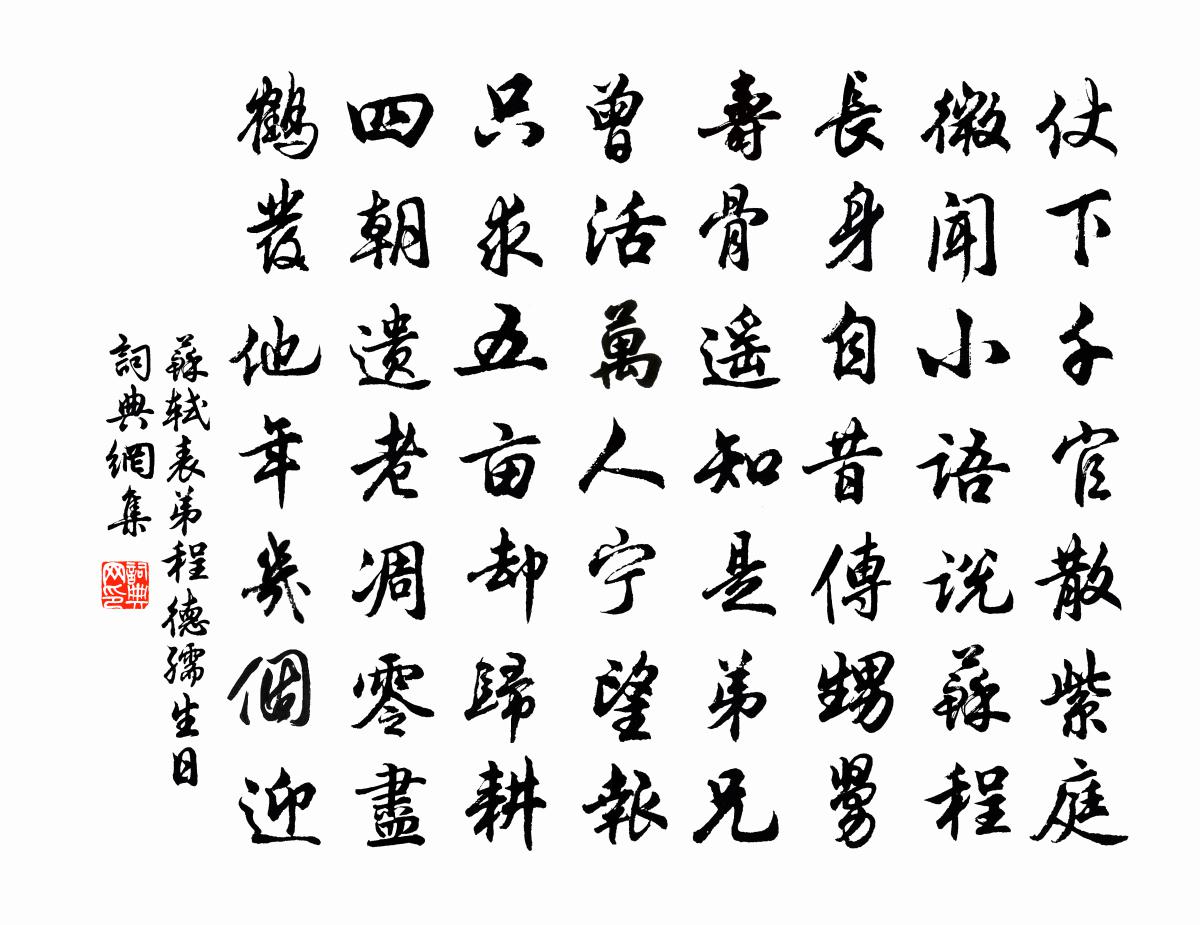 仗下千官散紫庭
微聞小語說蘇程
長身自昔傳甥舅
壽骨遥知是弟兄
曾活萬人宁望報
只求五亩却歸耕
四朝遗老凋零盡
鶴发他年幾個迎
蘇軾表弟程德孺生日
詞典網集
詞典网印